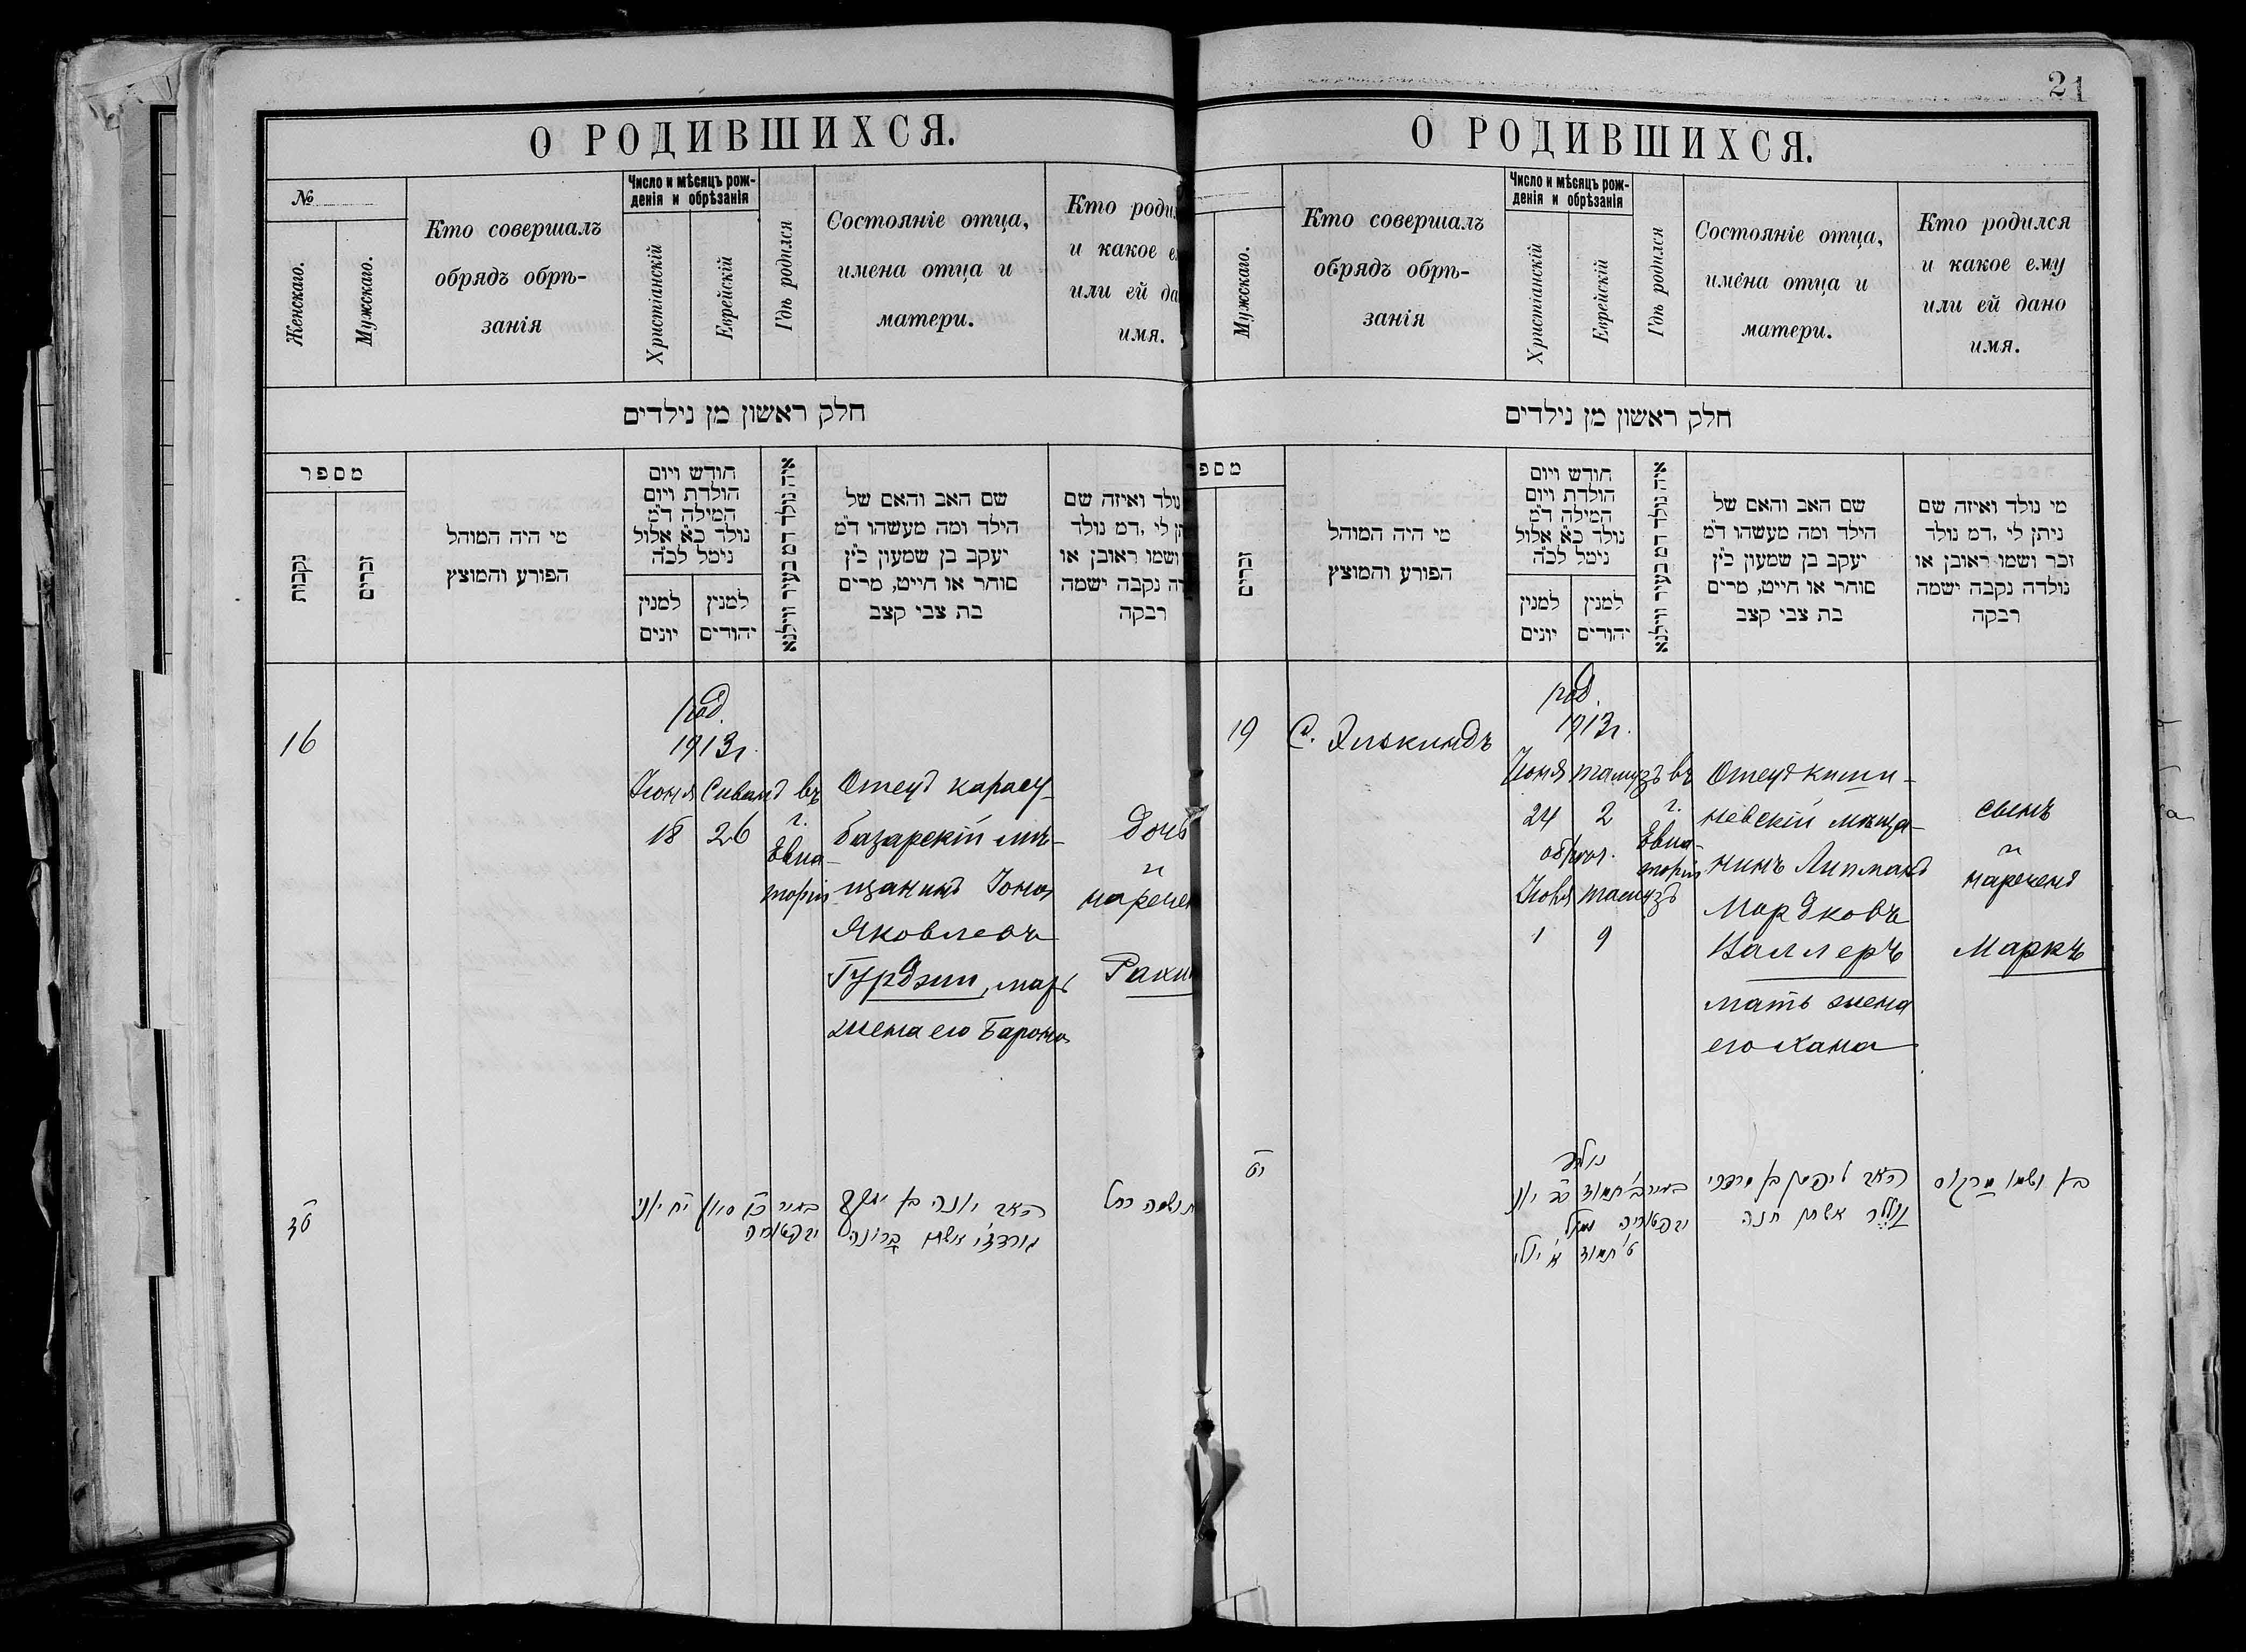 О РОДИВШИХСЯ.
№
Женскаго.
Мужскаго.
Кто совершалъ
обрядъ обрѣ-
занія
Число и мѣсяцъ рож-
денія и обрѣзанія
Христіанскій
Еврейскій
Гдѣ родился
Состояніе отца,
имена отца и
матери.
Кто роди
и какое е
или ей да
имя.
חלק ראשון מן נילדים
מספר
נקבות
זכרים
מי היה המוהל
הפורע והמוצץ
חודש ויום
הולדת ויום
המילה ד"מ
נולד כ"א אלול
נימל לכ"ה
למנין
יונים
למנין
יהודים
איה נולד דמ בעיר ווילנא
שם האב והאם של
הילד ומה מעשהו ד"מ
יעקב בן שמעון כ"ץ
סוחר או חייט, מרים
בת צבי קצב
נולד ואיזה שם
תן לי, דמ נולד
ושמו ראובן או
דה נקבה ישמה
רבקה
16
род.
1913г.
Іюня Сивана въ
18 26 г.
Евпа-
торіи
Отецъ карасу-
базарскій мѣ-
щанинъ Іона
Яковлевъ
Гурджи, мать
жена его Барона
дочь
и
наречен
Рахи
טז
י"ח יוני
כ"ו סיון
בעיר
יבפטוריה
האב יונה בן יעקב
גורדזי אשתו ברונה
ושמה רחל
21
О РОДИВШИХСЯ.
Мужскаго.
Кто совершалъ
обрядъ обрѣ-
занія
Число и мѣсяцъ рож-
денія и обрѣзанія
Христіанскій
Еврейскій
Гдѣ родился
Состояніе отца,
имена отца и
матери.
Кто родился
и какое ему
или ей дано
имя.
חלק ראשון מן נילדים
מספר
זכרים
מי היה המוהל
הפורע והמוצץ
חודש ויום
הולדת ויום
המילה ד"מ
נולד כ"א אלול
נימל לכ"ה
למנין
יונים
למנין
יהודים
איה נולד דמ בעיר ווילנא
שם האב והאם של
הילד ומה מעשהו ד"מ
יעקב בן שמעון כ"ץ
סוחר או חייט, מרים
בת צבי קצב
מי נולד ואיזה שם
ניתן לי, דמ נולד
זכר ושמו ראובן או
נולדה נקבה ישמה
רבקה
19
С. Элькиндъ
род.
1913г.
Іюня тамузъ въ
24 2 г.
Евпа-
торіи
обрѣз.
Іюля тамузъ
1 9
Отецъ киши-
невскій мѣща-
нинъ Липманъ
Мордковъ
Валлеръ
мать жена
его Хана
сынъ
и
нареченъ
Маркъ
יט
נולד
ב' תמוז כ"ד יוני
בעיר
יבפטוריה נימל
ט' תמוז א' יולי
האב ליפמן בן מרדכי
וללר אשתו חנה
בן ושמו מרקוס